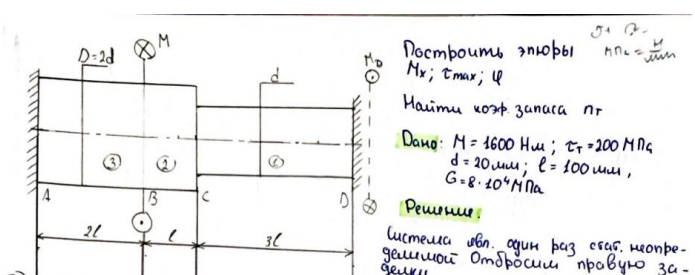 D=2d
M
d
M_D
③ ② ①
A B C D
2l l 3l
Построить эпюры
МПа = Н/мм
Mx; τmax; φ
Найти коэф. запаса nт
Дано: M = 1600 Нм; τт = 200 МПа
d = 20мм; l = 100мм,
G = 8·10⁴ МПа
Решение.
Система явл. один раз стат. неопре-
делимой Отбросим правую за-
делку